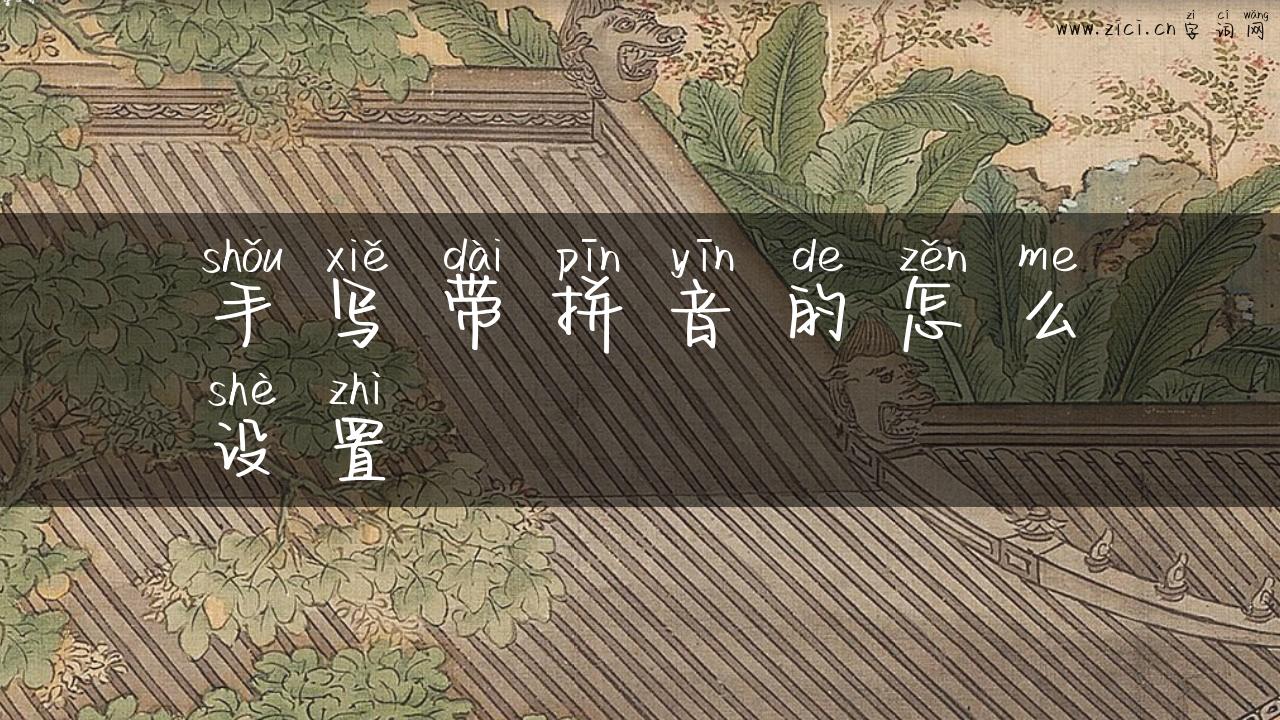 zì cí wǎng
www.zici.cn 字词网
shǒu xiě dài pīn yīn de zěn me
手写带拼音的怎么
shè zhì
设置